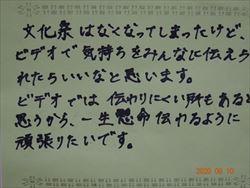 文化祭はなくなってしまったけど、
ビデオで気持ちをみんなに伝えら
れたらいいなと思います。
ビデオでは伝わりにくい所もあると
思うから、一生懸命伝わるように
頑張りたいです。
2020 09 10